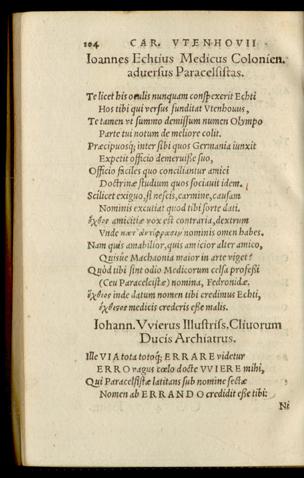 104 CAR. VTENHOVII
Ioannes Echtius Medicus Colonien.
aduersus Paracelsistas.
Te licet his oculis nunquam conspexerit Echti
Hos tibi qui versus funditat Vtenhouus,
Te tamen vt summo demissum numen Olympo
Parte tui notum de meliore colit.
Præcipuosq́; inter sibi quos Germania iunxit
Expetit officio demeruisse suo,
Officio faciles quo conciliantur amici
Doctrinæ studium quos sociauit idem.
Scilicet exiguo, si nescis, carmine, causam
Nominis excutiat quod tibi forte dati.
ἔχθος amicitiæ vox est contraria, dextrum
Vnde κατ' ἀντίφρασιν nominis omen habes.
Nam quis amabilior, quis amicior alter amico,
Quisúe Machaonia maior in arte viget?
Quòd tibi sint odio Medicorum celsa professi
(Ceu Paracelsistæ) nomina, Fedronidæ.
ἔχθεος inde datum nomen tibi credimus Echti,
ἔχθεος medicis crederis esse malis.
Iohann. Vvierus Illustriss. Cliuorum
Ducis Archiatrus.
Ille VIA tota totoq́; ERRARE videtur
ERRO vagus cœlo docte VVIERE mihi,
Qui Paracelsistæ latitans sub nomine sectæ
Nomen ab ERRANDO credidit esse tibi:
Ni